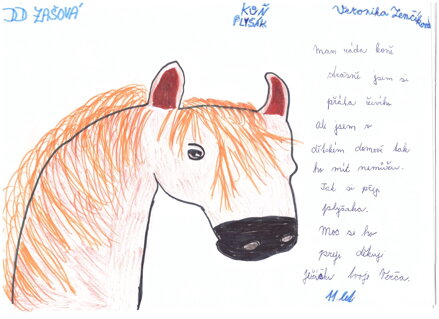 DD ZAŠOVÁ
KOŇ
PLYŠÁK
Veronika
Mam ráda koně
strašně jsem si
přála živého
Ale jsem v
dětském domově tak
ho mít nemůžu.
Tak si přeji
plyšáka.
Moc se ho
přeji děkuji
Ježíšku tvoje Verča.
11 let